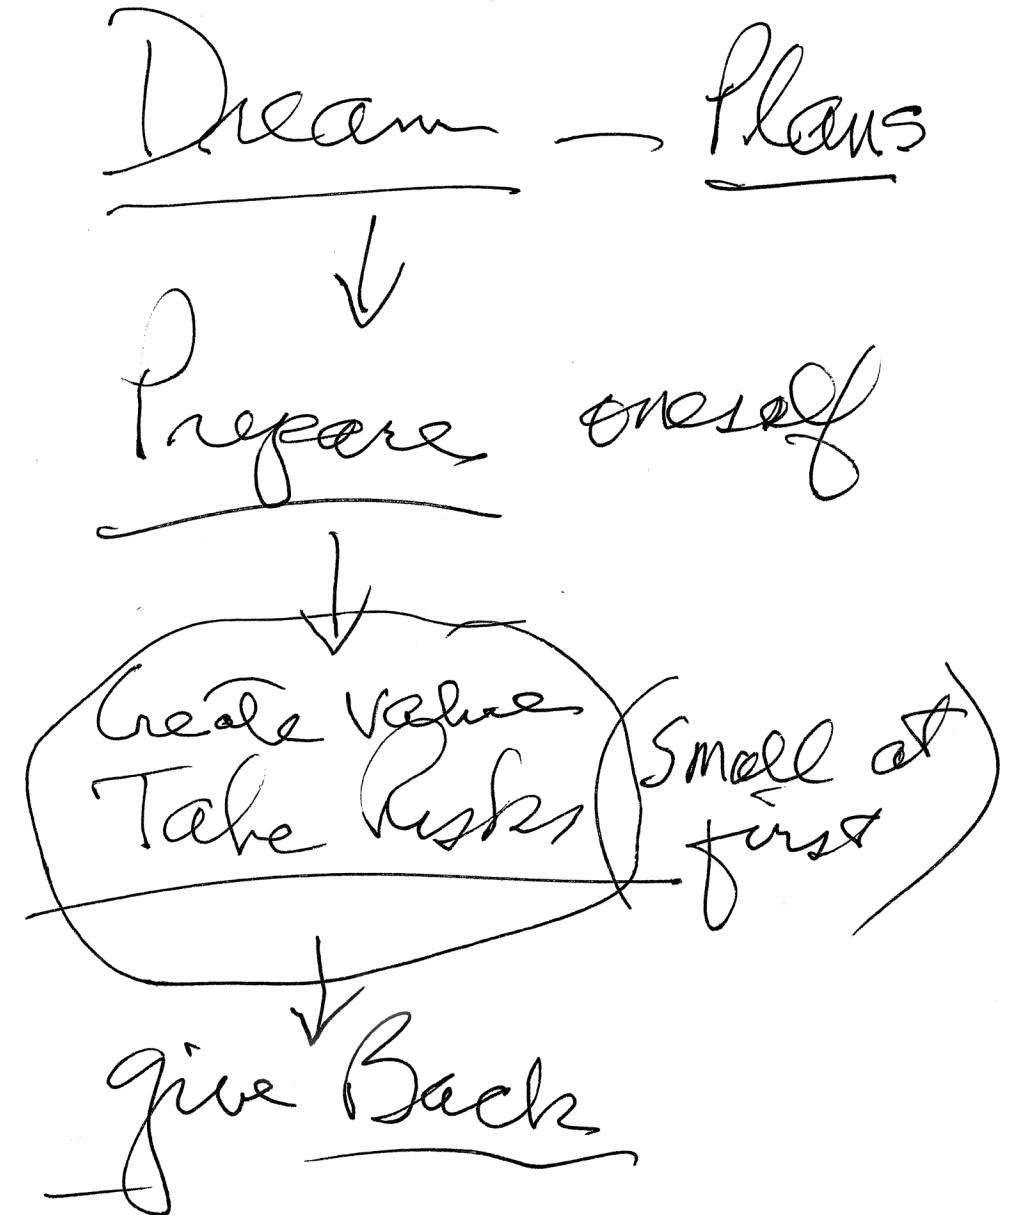 Dream — Plans
Prepare oneself
Create value
Take Risks
(Small at
first)
give Back